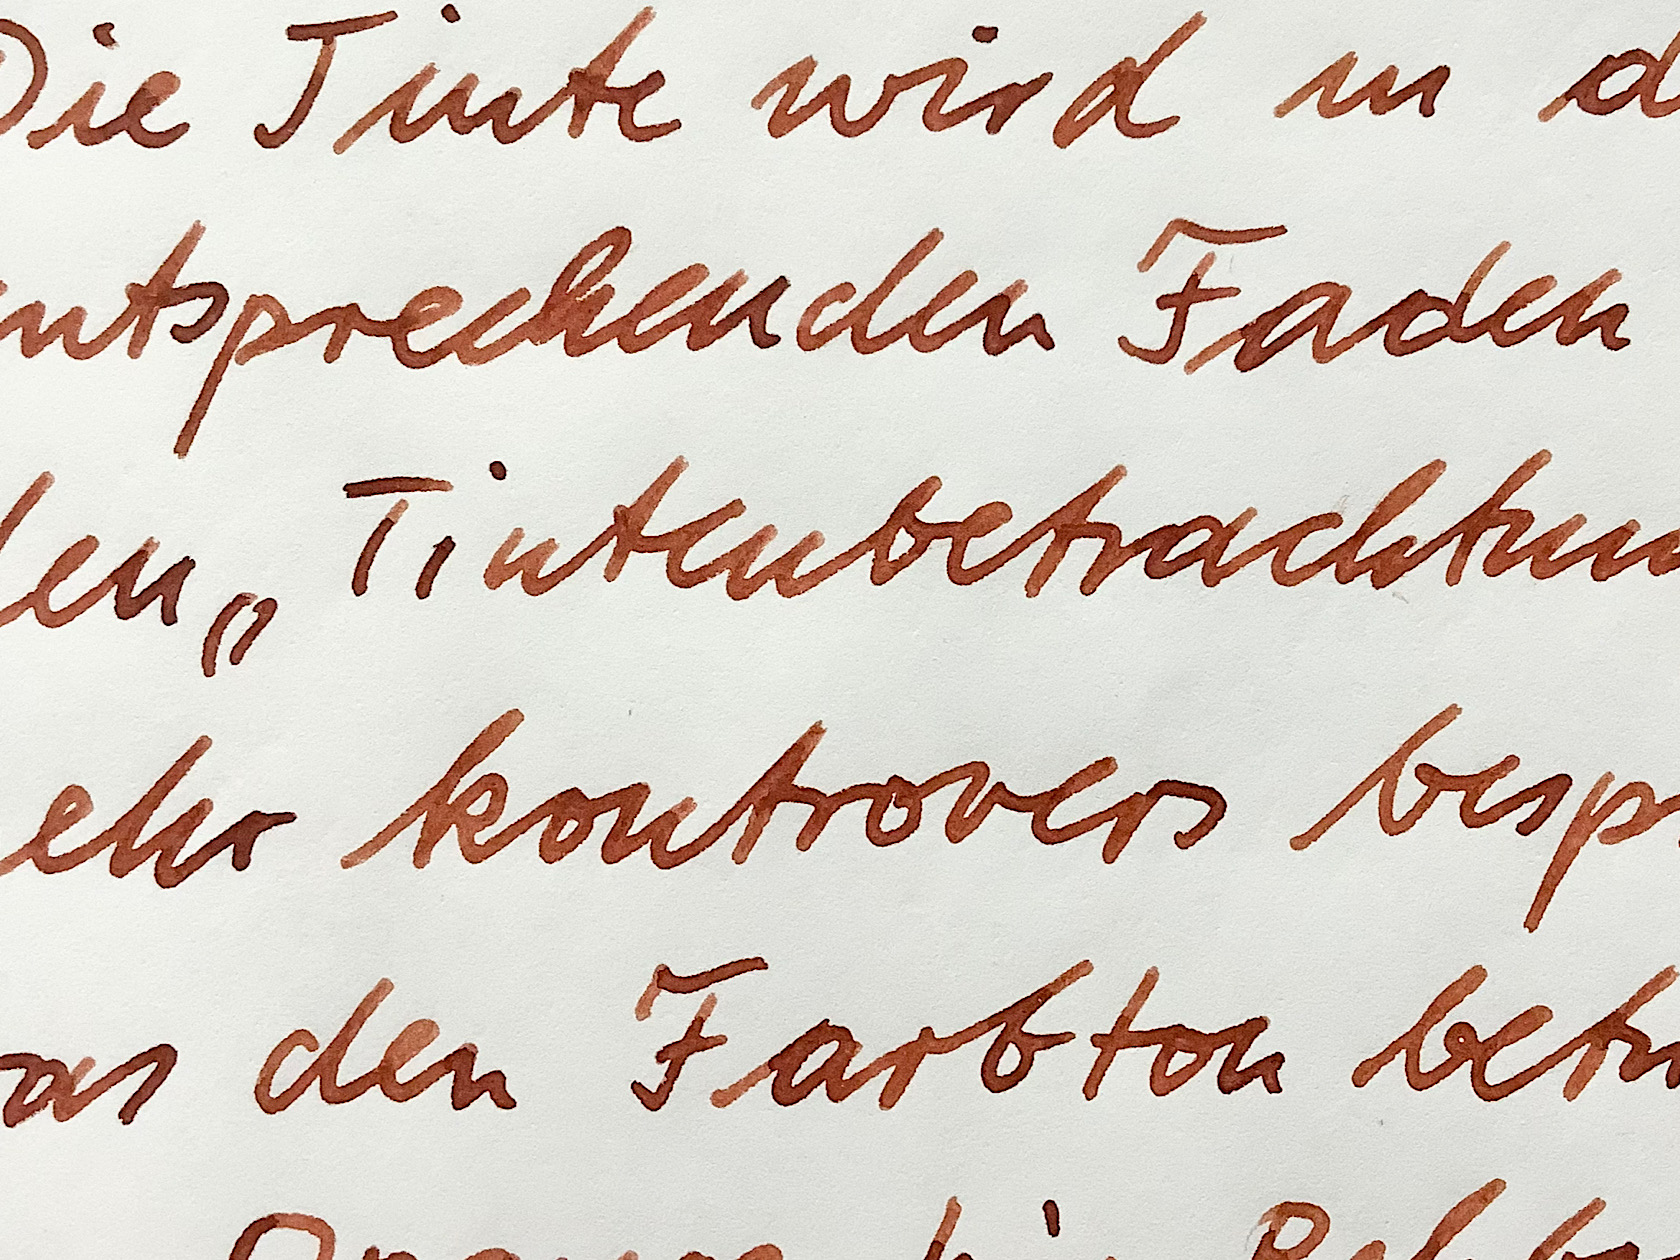 Die Tinte wird in d
ntsprechenden Faden
den „Tintenbetrachtun
ehr kontrovers besp
as den Farbton betr
Orange bis